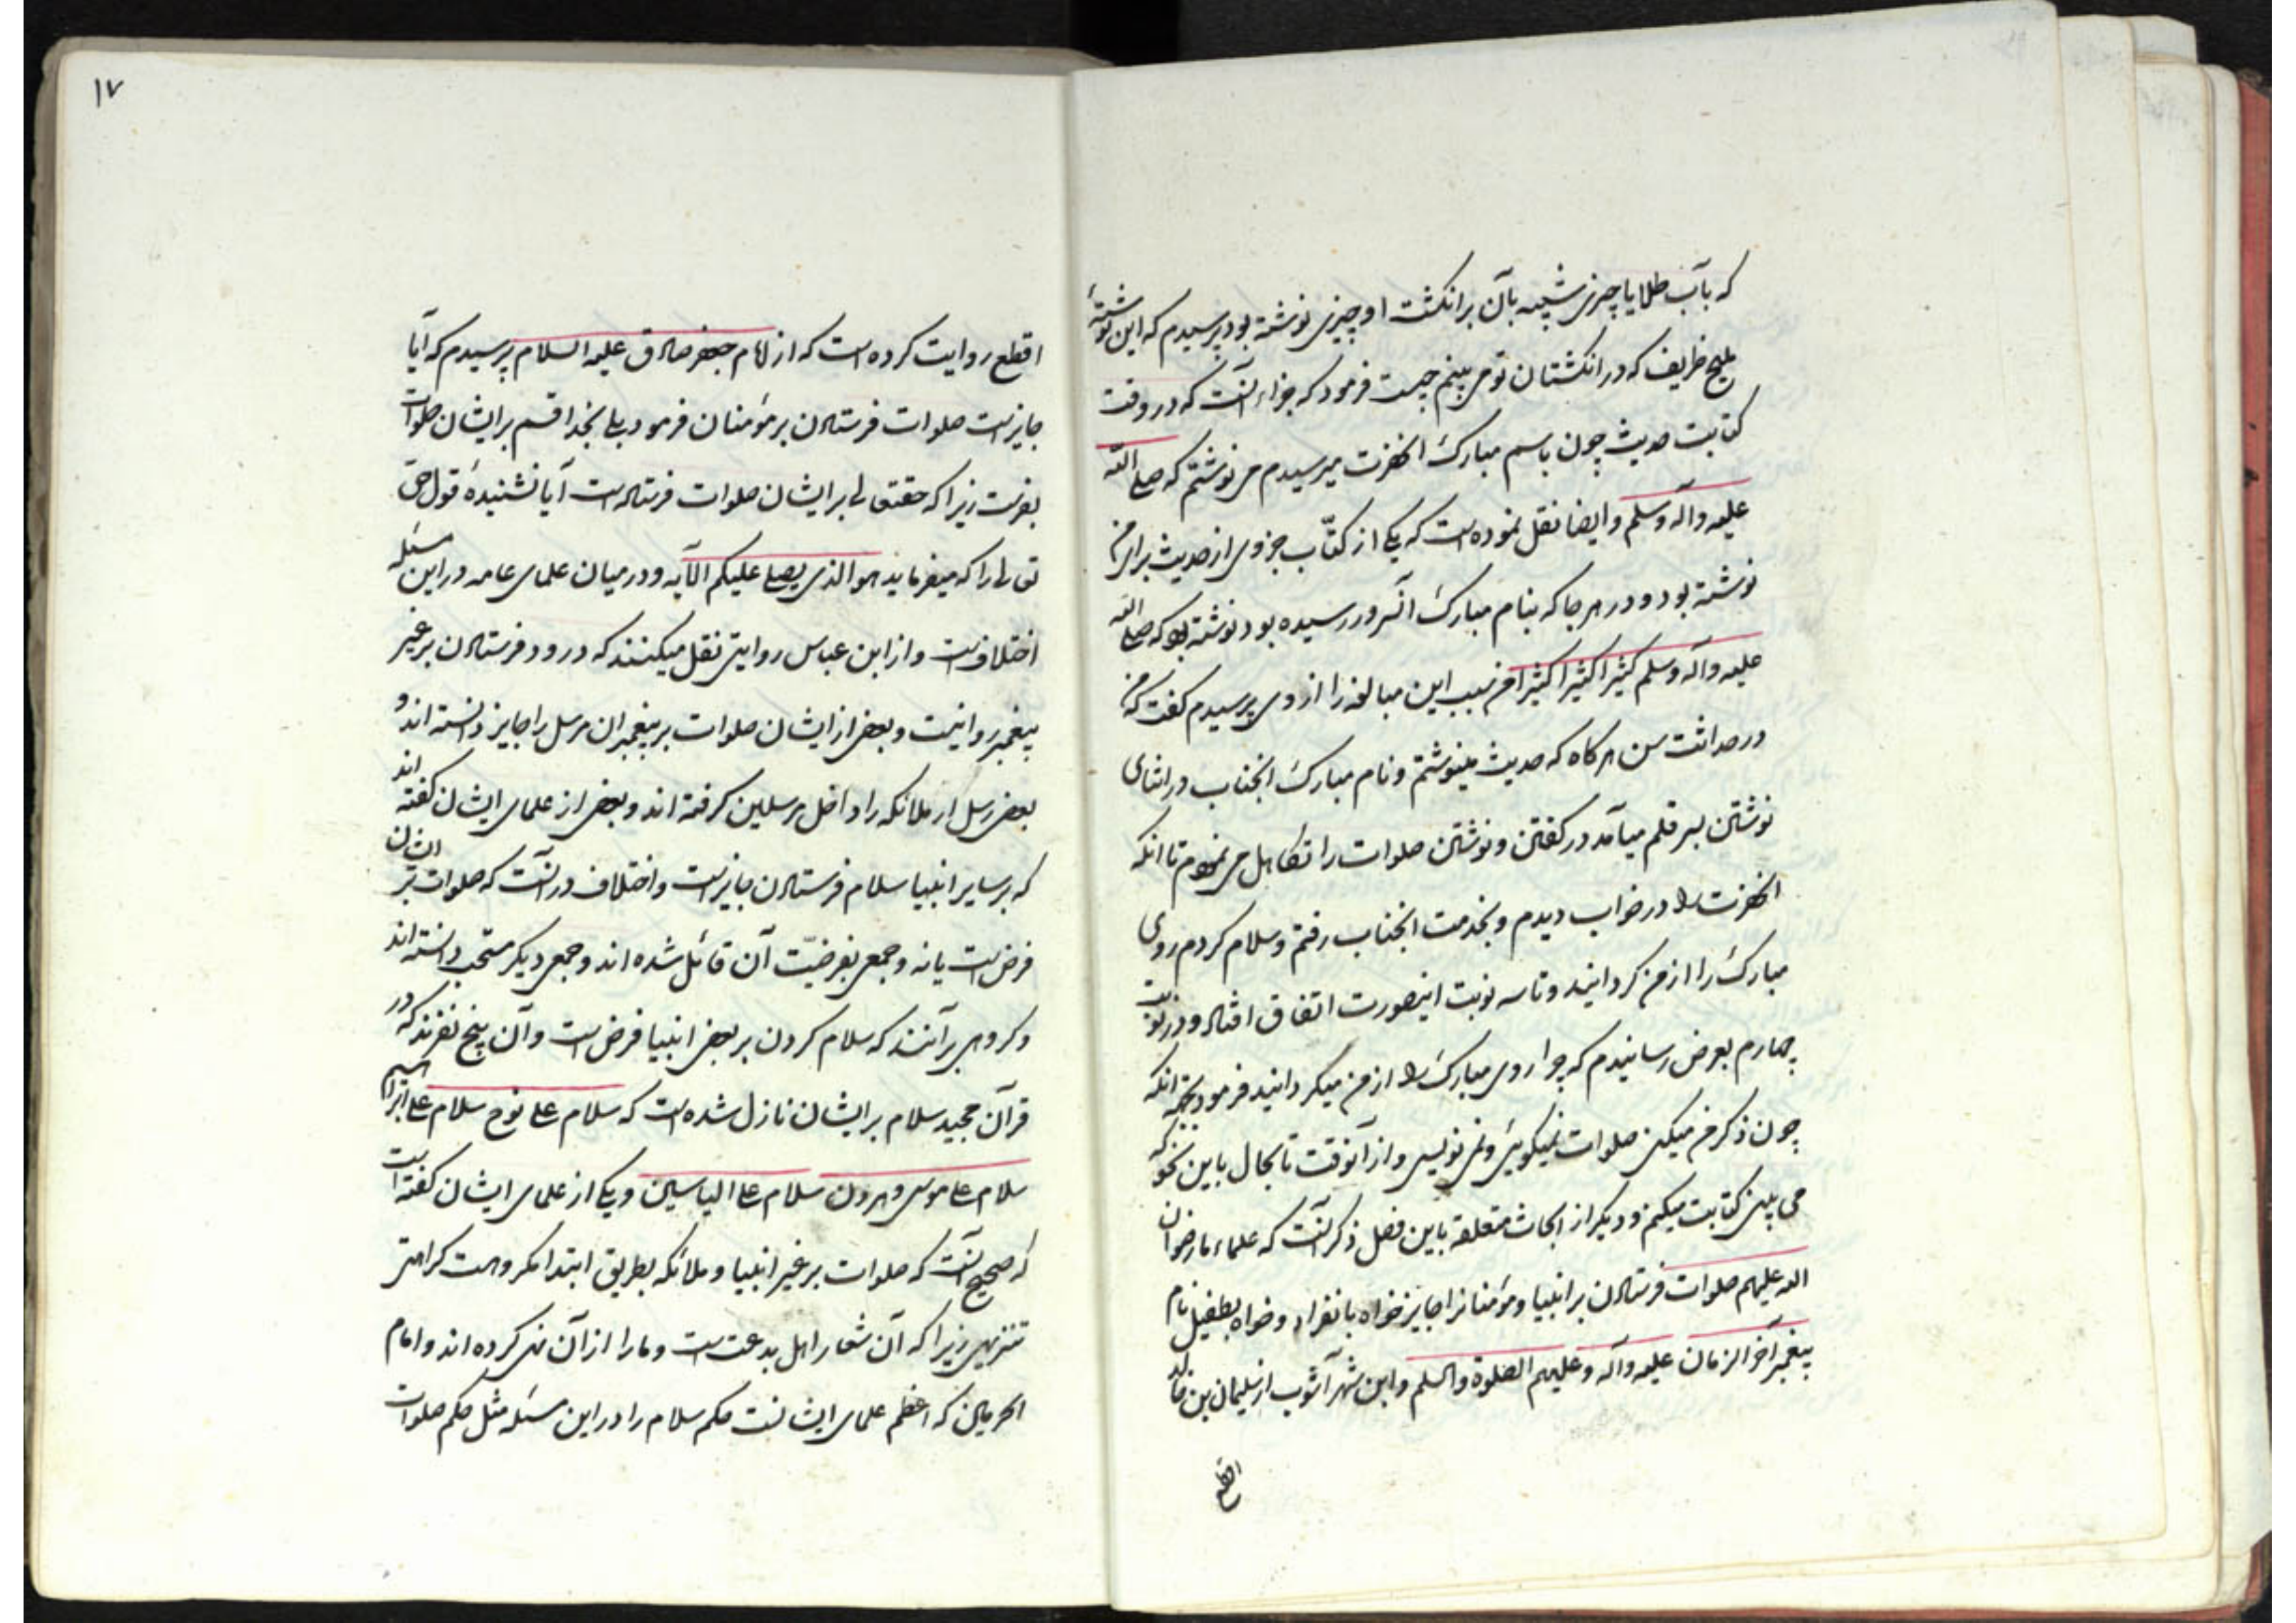 که بآب طلا یا چیزی شبیه بآن بر انکشت او چیزی نوشته بود پرسیدم که این نوشتهٔ
ملیح ظریف که در انکشتان تو می بینم چیست فرمود که جزاء آنست که در وقت
کتابت حدیث چون باسم مبارک انحضرت میرسیدم می نوشتم که صلی الله
علیه وآله وسلم وایضا نقل نموده است که یکی از کتّاب جزوی از حدیث برای من
نوشته بود و در هر جا که بنام مبارک آنسرور رسیده بود نوشته بود که صلی الله
علیه وآله وسلم کثیرا کثیرا کثیرا من سبب این مبالغه را از وی پرسیدم کفت که من
در حداثت سن هرکاه که حدیث مینوشتم و نام مبارک انجناب در اثنای
نوشتن بسر قلم میآمد در کفتن و نوشتن صلوات را تکاهل می نمودم تا انکه
انحضرت را در خواب دیدم و بخدمت انجناب رفتم وسلام کردم روی
مبارک را از من کردانید و تا سه نوبت اینصورت اتفاق افتاد و در نوبت
چهارم بعرض رسانیدم که چرا روی مبارک را از من میکردانید فرمود بجهة انکه
چون ذکر من میکنی صلوات نمیکویی و نمی نویسی و از آنوقت تا بحال باین نحو که
می بینی کتابت میکنم و دیکر از ابحاث متعلقه باین فصل ذکر آنست که علماء ما رضوان
الله علیهم صلوات فرستادن بر انبیا و مؤمنانرا جایز خواه بانفراد و خواه بطفیل نام
پیغمبر آخر الزمان علیه وآله وعلیهم الصلوة والسلم و ابن شهر آشوب از سلیمان بن خالد
اقطع
۱۷
اقطع روایت کرده است که از امام جعفر صادق علیه السلام پرسیدم که آیا
جایز است صلوات فرستادن بر مؤمنان فرمود بلی بخدا قسم بر ایشان صلوات
بفرست زیرا که حقتعالی بر ایشان صلوات فرستاده است آیا نشنیدهٔ قول حق
تعالی را که میفرماید هو الذی یصلی علیکم الآیه و در میان علمای عامه در این مسئله
اختلاف است و از ابن عباس روایتی نقل میکنند که درود فرستادن بر غیر
پیغمبر روا نیست و بعضی از ایشان صلوات بر پیغمبران مرسل را جایز دانسته اند و
بعضی رسل از ملائکه را داخل مرسلین کرفته اند و بعضی از علمای ایشان کفته اند
که بر سایر انبیا سلام فرستادن جایز است و اختلاف در آنست که صلوات بر ایشان
فرض است یا نه و جمعی بفرضیّت آن قائل شده اند و جمعی دیکر مستحب دانسته اند
و کروهی بر آنند که سلام کردن بر بعضی انبیا فرض است و آن پنج نفرند که در
قرآن مجید سلام بر ایشان نازل شده است که سلام علی نوح سلام علی ابراهیم
سلام علی موسی وهرون سلام علی الیاسین و یکی از علمای ایشان کفته است
که صحیح آنست که صلوات بر غیر انبیا و ملائکه بطریق ابتدا مکروهست کراهتی
تنزیهی زیرا که آن شعار اهل بدعت است و ما را از آن نهی کرده اند و امام
الحرمین که اعظم علمای ایشانست حکم سلام را در این مسئله مثل حکم صلوات